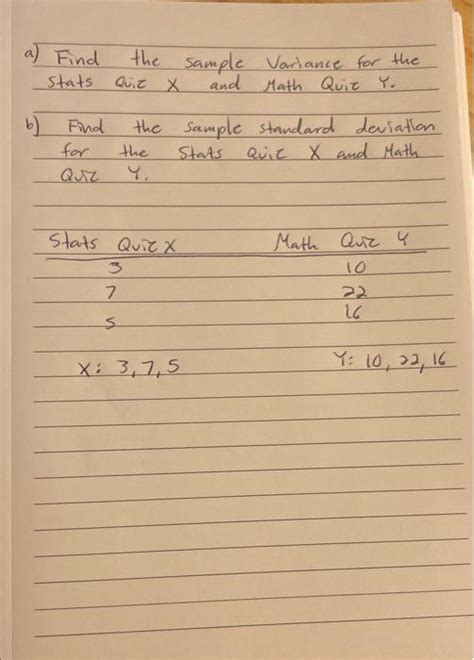 a) Find the sample Variance for the
Stats Quiz X and Math Quiz Y.
b) Find the sample standard deviation
for the Stats Quiz X and Math
Quiz Y.
Stats Quiz X Math Quiz Y
3 10
7 22
5 16
X: 3, 7, 5 Y: 10, 22, 16